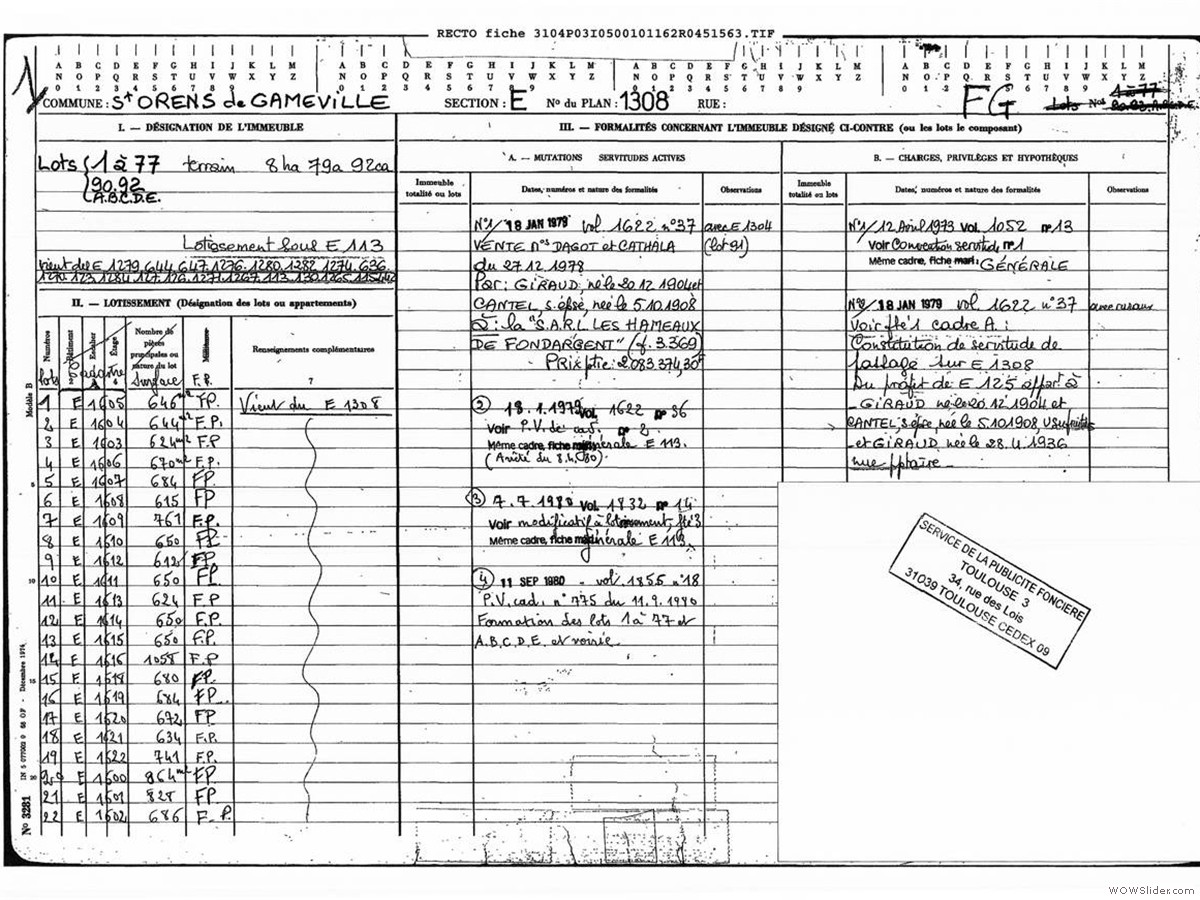 RECTO fiche 3104P03I0500101162R0451563.TIF
COMMUNE : St ORENS de GAMEVILLE SECTION : E No du PLAN : 1308 RUE : FG
Lots Nos 1 à 77
I. — DÉSIGNATION DE L'IMMEUBLE
Lots 1 à 77 terrain 8 ha 79a 92ca
90.92
A.B.C.D.E.
Lotissement sous E 113
vient de E 1279, 644, 647, 1276, 1280, 1282, 1274, 636,
II. — LOTISSEMENT (Désignation des lots ou appartements)
Numéros lots Bâtiment Escalier Étage Nombre de pièces principales ou nature du lot Surface F.P. Renseignements complémentaires
7
1 E 1605 646 m2 F.P. Vient du E 1308
2 E 1604 644 m2 F.P.
3 E 1603 624 m2 F.P
4 E 1606 670 m2 F.P.
5 E 1607 684 FP
6 E 1608 615 FP
7 E 1609 761 F.P.
8 E 1610 650 FP
9 E 1612 612 FP
10 E 1611 650 FP
11 E 1613 624 F.P
12 E 1614 650 F.P.
13 E 1615 650 F.P.
14 E 1616 1058 F.P
15 E 1618 680 FP
16 E 1619 684 FP
17 E 1620 672 FP
18 E 1621 634 F.P.
19 E 1622 741 F.P.
20 E 1600 864 m2 FP
21 E 1601 828 FP
22 E 1602 686 F.P.
III. — FORMALITÉS CONCERNANT L'IMMEUBLE DÉSIGNÉ CI-CONTRE (ou les lots le composant)
A. — MUTATIONS SERVITUDES ACTIVES
Immeuble totalité ou lots Dates, numéros et nature des formalités Observations
N°1/ 18 JAN 1979 vol. 1622 n°37 avec E 1304
VENTE nos DAGOT et CATHALA (lot 91)
du 27.12.1978
Par : GIRAUD, né le 20.12.1904 et
CANTEL, s. épse, née le 5.10.1908
A : la "S.A.R.L. LES HAMEAUX
DE FONDARGENT" (f. 3.369)
PRIX ptie : 2.083.374,30F
2 18.1.1979 vol. 1622 n° 36
Voir P.V. de cad. n° 2.
Même cadre, fiche générale E 113.
(Arrêté du 8.4.80).
3 7.7.1980 vol. 1832 n° 14
Voir modificatif à lotissement, fté 3
Même cadre, fiche générale E 113.
4 11 SEP 1980 - vol. 1855 n° 18
P.V. cad. n° 775 du 11.9.1980
Formation des lots 1 à 77 et
A.B.C.D.E. et voirie.
B. — CHARGES, PRIVILÈGES ET HYPOTHÈQUES
Immeuble totalité ou lots Dates, numéros et nature des formalités Observations
N°1/ 12 Avril 1973 Vol. 1052 n° 13
Voir Convention servitude n° 1
Même cadre, fiche GÉNÉRALE
N°2/ 18 JAN 1979 vol. 1622 n°37
Voir fté 1 cadre A :
Constitution de servitude de
passage sur E 1308
Au profit de E 125 appart. à
- GIRAUD né le 20.12.1904 et
CANTEL, s. épse, née le 5.10.1908, Usufruitiers
- et GIRAUD, née le 28.4.1936
nue pptaire -
SERVICE DE LA PUBLICITE FONCIERE
TOULOUSE 3
34, rue des Lois
31039 TOULOUSE CEDEX 09
Modèle B
No 3281
WOWSlider.com